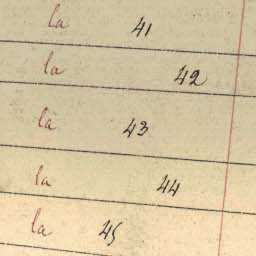 la 41
la 42
la 43
la 44
la 45